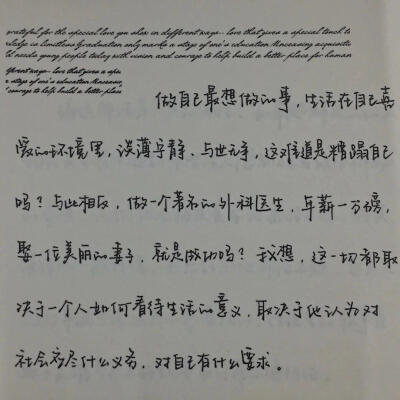 grateful for the special love you show in different ways - love that gives a special touch to
Ledge is limitless Graduation only marks a stage of one's education Unceasing acquisitio
ld needs young people today with vision and courage to help build a better place for human
fferent ways - love that gives a spe
a stage of one's education Unceas
courage to help build a better place
做自己最想做的事，生活在自己喜
爱的环境里，淡薄宁静、与世无争，这难道是糟蹋自己
吗？与此相反，做一个著名的外科医生，年薪一万磅，
娶一位美丽的妻子，就是成功吗？我想，这一切都取
决于一个人如何看待生活的意义，取决于他认为对
社会应尽什么义务，对自己有什么要求。